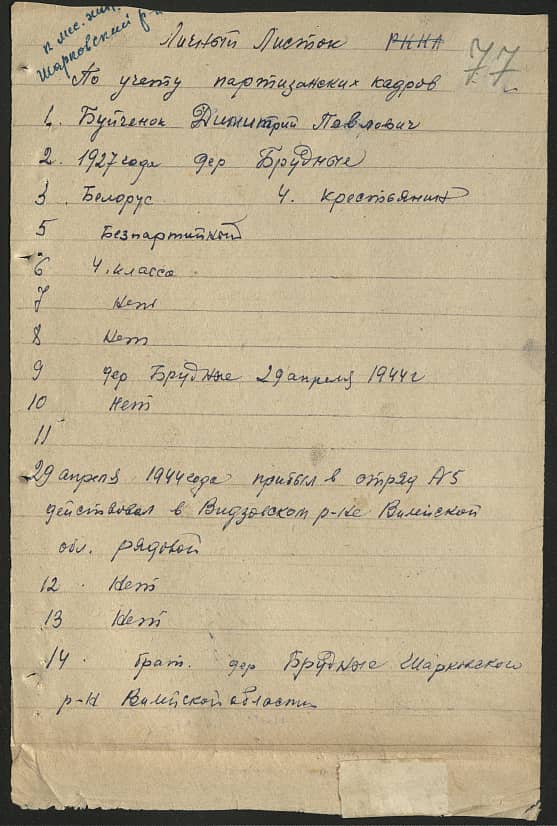 п мес. жит.
Шарковский р-н
Личный Листок РККА 77
По учету партизанских кадров
1. Буйченок Димитрий Павлович
2. 1927 года дер Брудные
3. Белорус 4. крестьянин
5 Безпартийный
6 4. класса
7 Нет
8 Нет
9 дер Брудные 29 апреля 1944 г
10 Нет
11
29 апреля 1944 года прибыл в отряд №5
действовал в Видзовском р-не Вилейской
обл. рядовой
12 Нет
13 Нет
14 брат. дер Брудные Шарковского
р-н Вилейской области